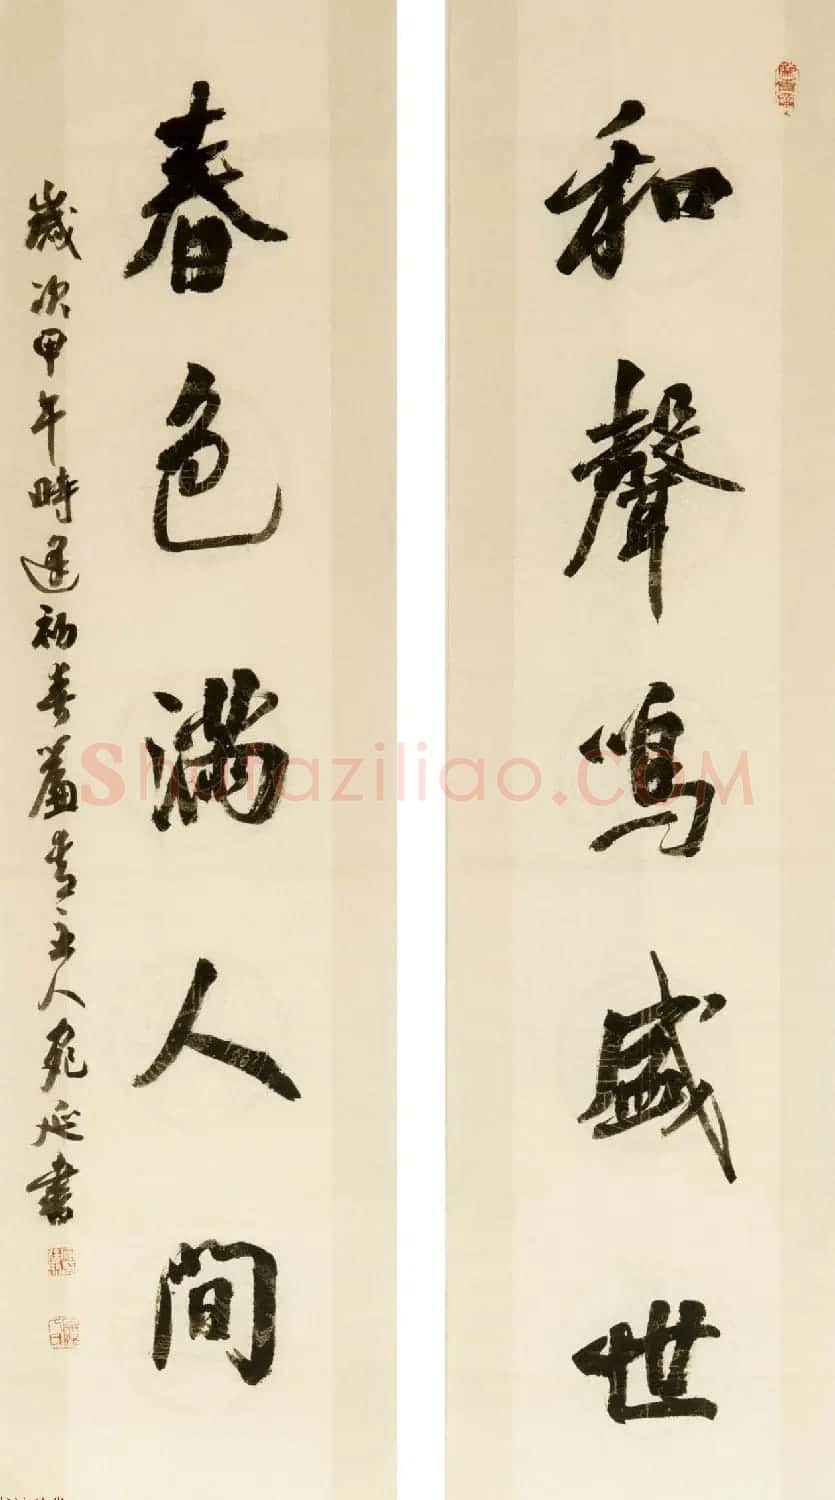 和聲鳴盛世
春色滿人間
歲次甲午時逢初春蘆青主人宛延書
Shufaziliao.COM